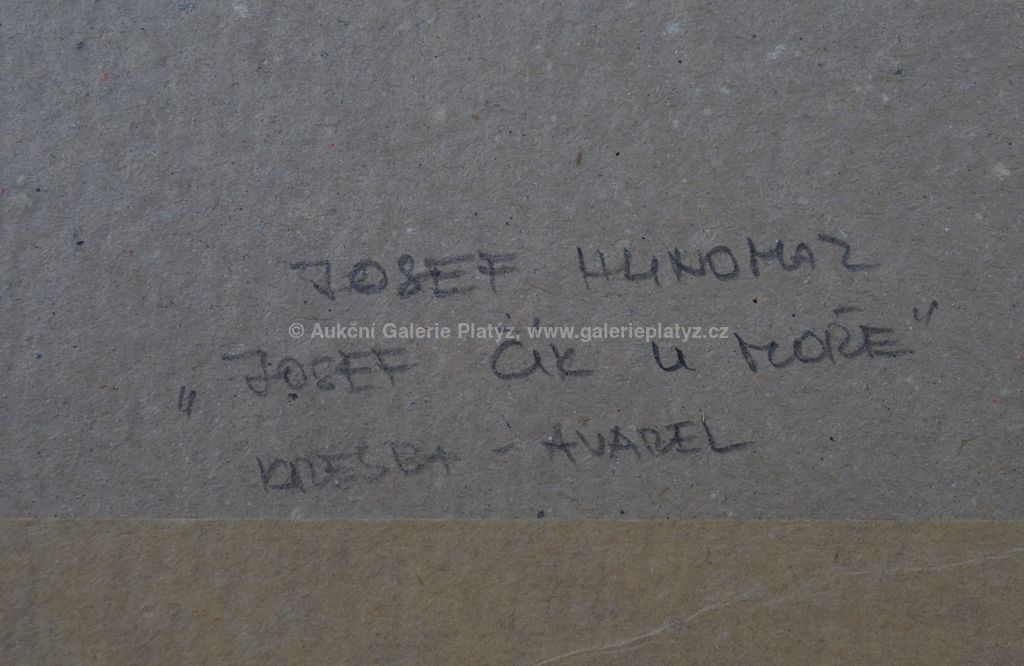 JOSEF HLINOMAZ
© Aukční Galerie Platýz, www.galerieplatyz.cz
„JOSEF ČÍK U MOŘE"
KRESBA - AVAREL